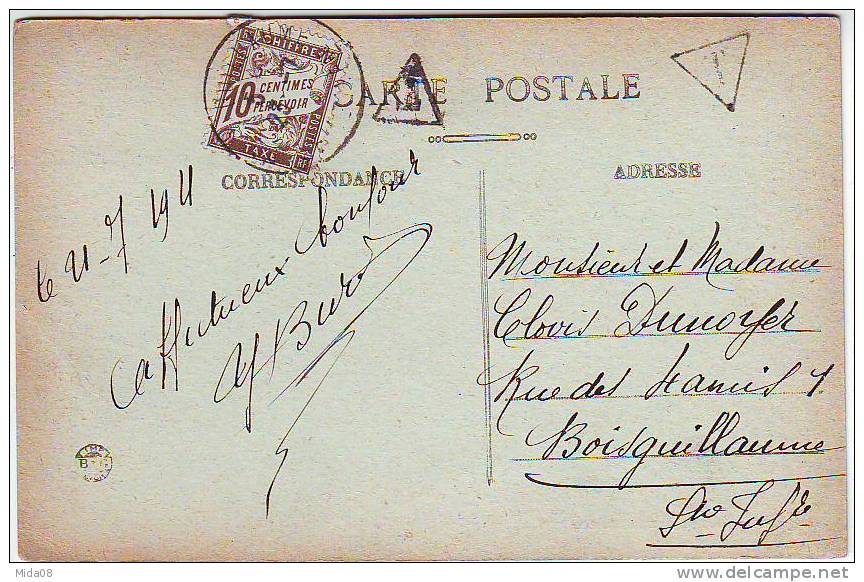 CHIFFRE TAXE
10 CENTIMES
PERCEVOIR
POSTES
TAXE
RF
CARTE POSTALE
T
CORRESPONDANCE
ADRESSE
le 21-7 1911
Affectueux bonjour
Monsieur et Madame
Clovis Dunoyer
Rue des
Boisguillaume
Sto Infre
Mida08
www.delcampe.net